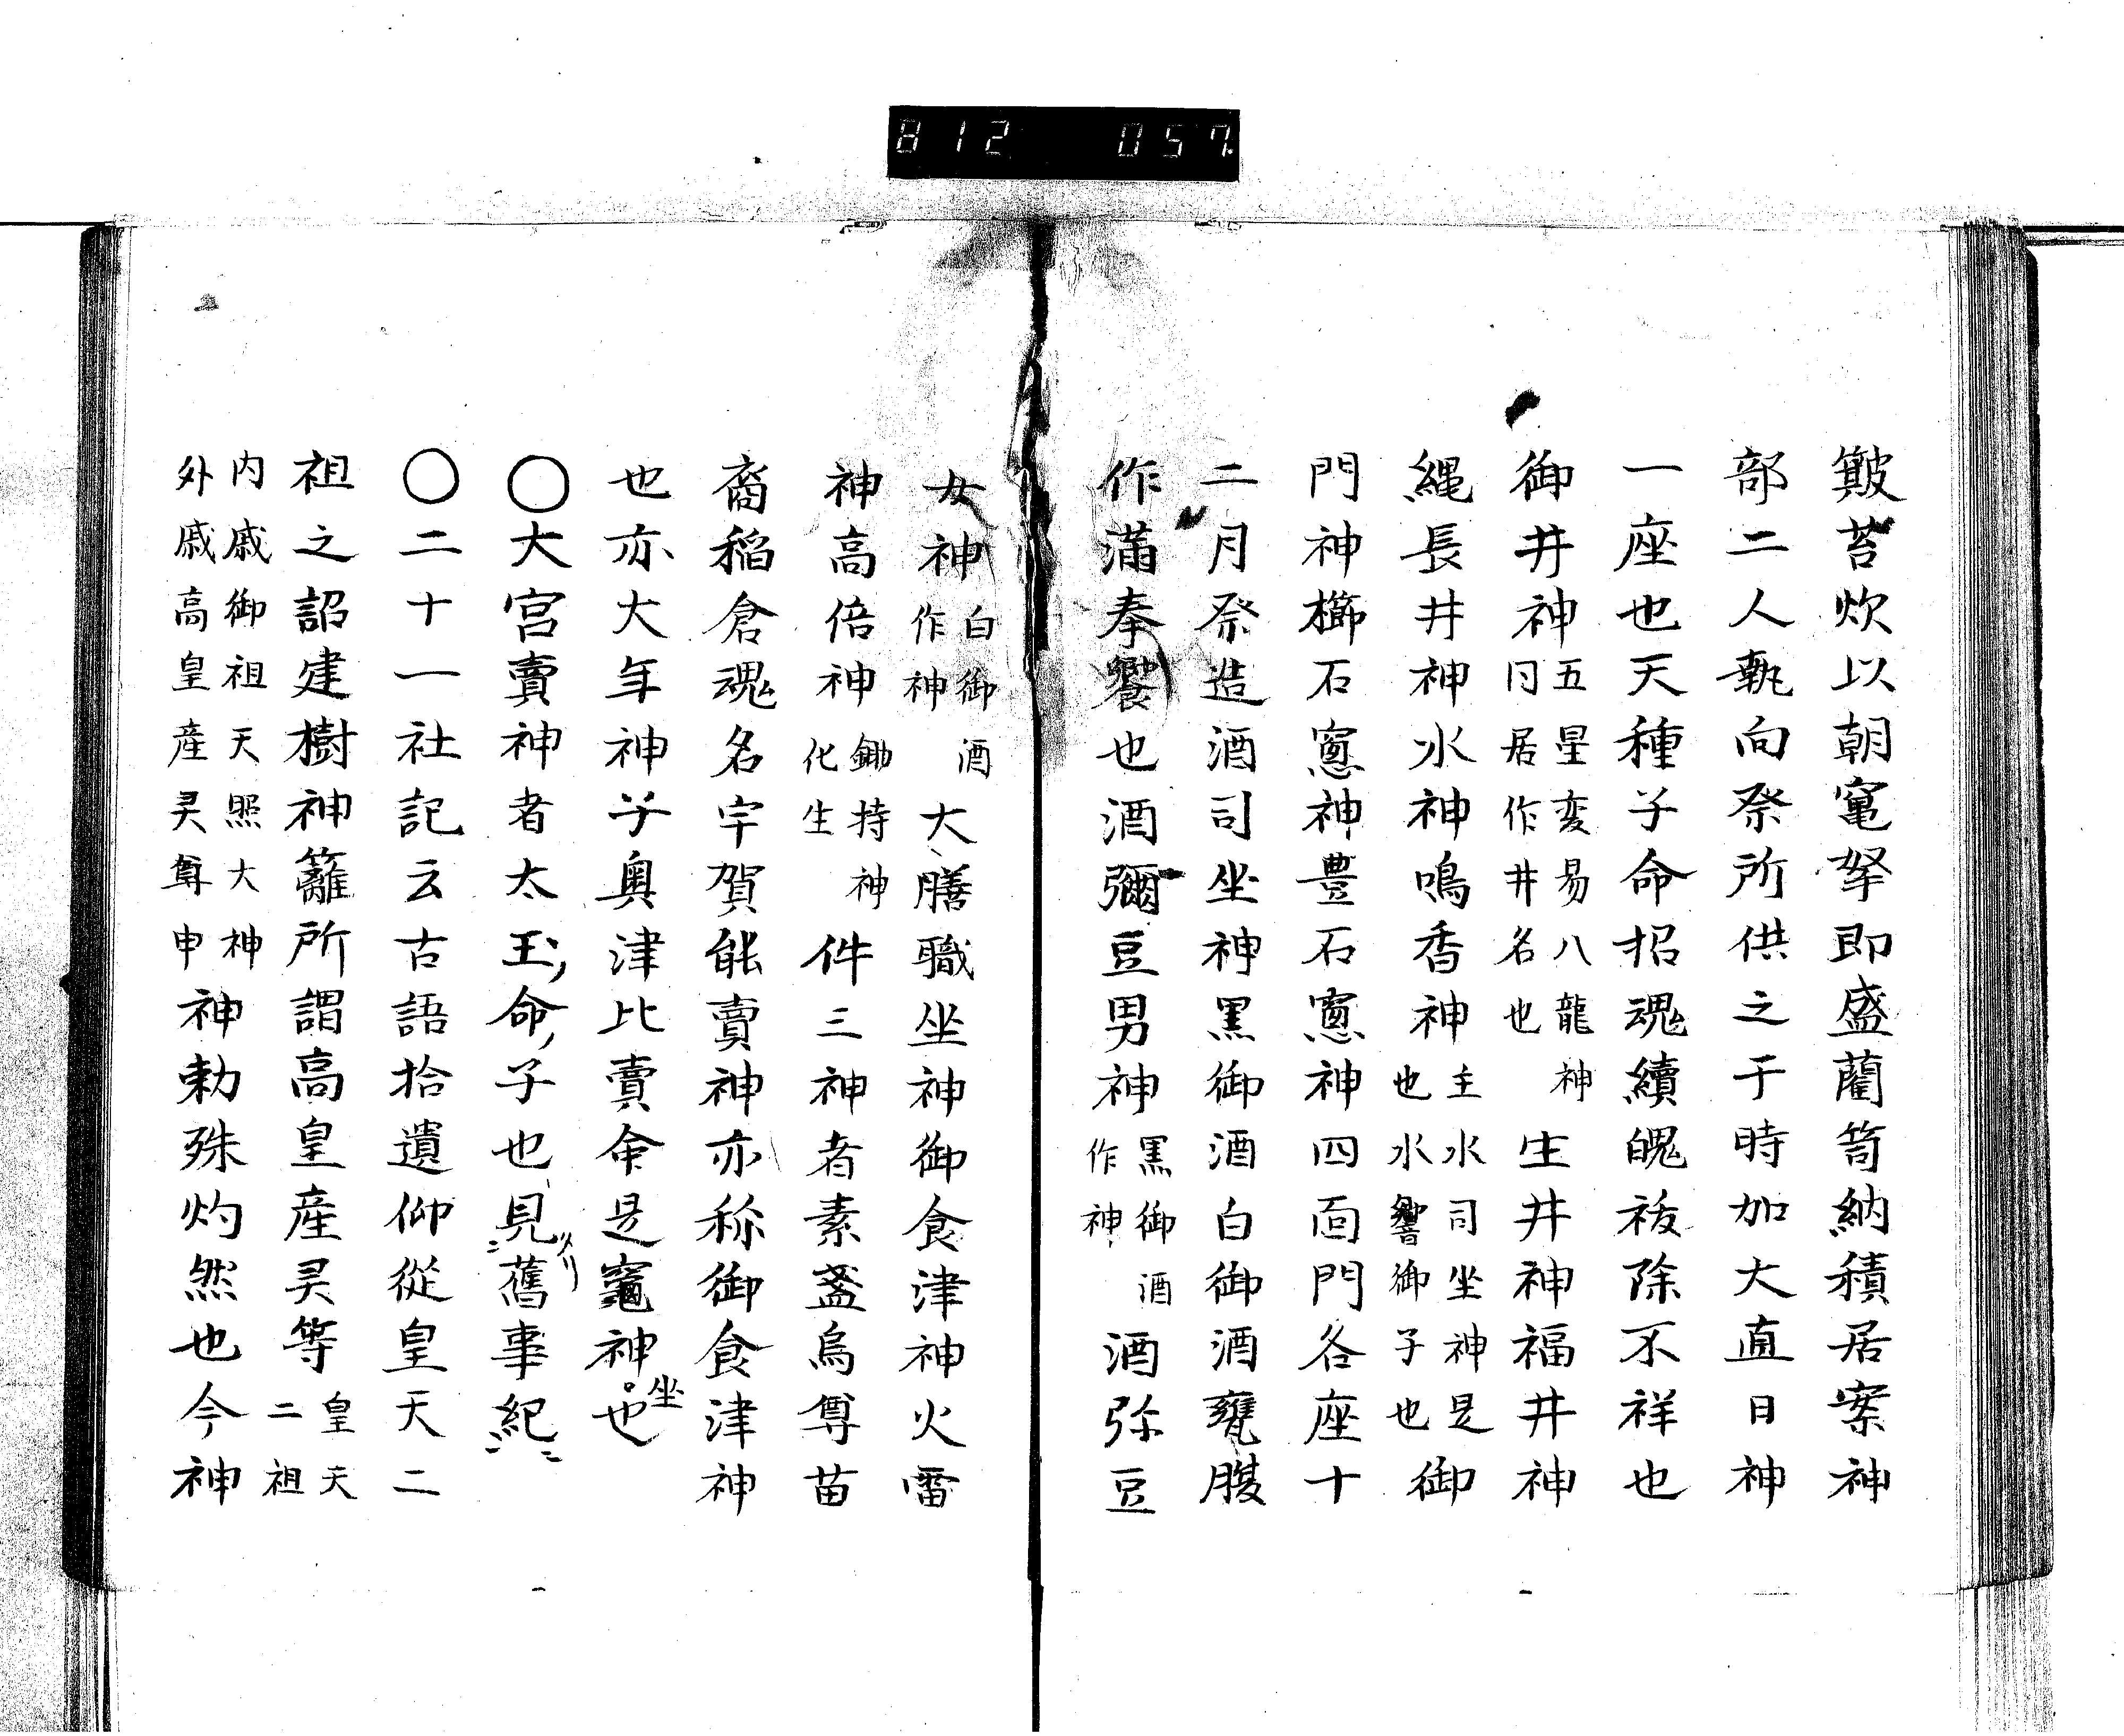 812 057
皽苔炊以朝竃拏即盛藺笥納積居案神
部二人執向祭所供之于時加大直日神
一座也天種子命招魂續魄祓除不祥也
御井神五星変易八龍神日居作井名也生井神福井神
縄長井神水神鳴香神主水司坐神是也水響御子也御
門神櫛石窓神豊石窓神四面門各座十
二月祭造酒司坐神黒御酒白御酒甕腹
作滿奉饗也酒彌豆男神黒御酒作神酒弥豆
女神白御酒作神大膳職坐神御食津神火雷
神高倍神鋤持神化生件三神者素盞烏尊苗
裔稲倉魂名宇賀能賣神亦称御食津神
也亦大年神子奥津比賣命是竈神坐也
○大宮賣神者太玉命子也見舊事紀
○二十一社記云古語拾遺仰從皇天二
祖之詔建樹神籬所謂高皇産灵等皇天二祖
内戚御祖天照大神外戚高皇産灵尊申神勅殊灼然也今神